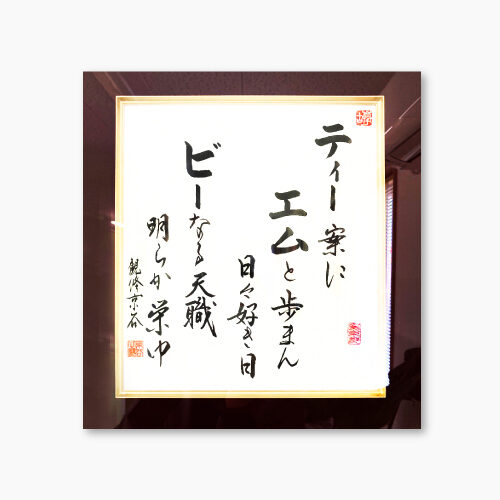 ティー案に
エムと歩まん
日々好き日
ビーなる天職
明らか栄ゆ